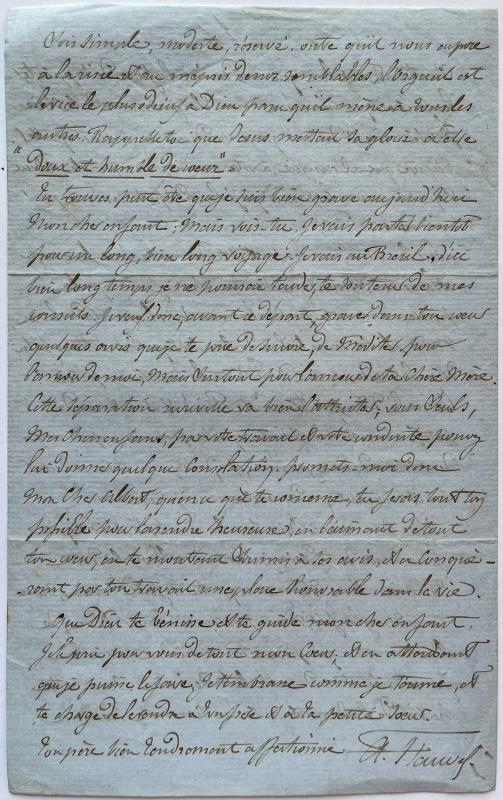 Sois simple, modeste, réservé. outre qu'il nous expose
à la risée et au mépris de nos semblables, l'orgueil est
le vice le plus odieux à Dieu parcequ'il mène à tous les
autres. Rappelle toi que Jesus mettait sa gloire à être
"doux et humble de coeur"
Tu trouves peut être que je suis bien grave aujourd'hui
mon cher enfant; mais vois-tu, je vais partir bientôt
pour un long, bien long voyage. Je vais au Brésil, d'ici
bien longtemps je ne pourrai t'aider, te soutenir de mes
conseils. Je veux donc, avant ce départ, graver dans ton coeur
quelques avis que je te prie de suivre, de méditer pour
l'amour de moi, mais surtout pour l'amour de ta chère Mère.
Cette séparation nouvelle va bien l'attrister, vous seuls,
mes chers enfans, par votre travail et votre conduite pouvez
lui donner quelque consolation. promets-moi donc
mon cher Albert, qu'en ce qui te concerne, tu feras tout ton
possible pour la rendre heureuse, en l'aimant de tout
ton coeur, en te montrant soumis à ses avis, et en conqué-
-rant par ton travail une place honorable dans la vie.
Que Dieu te bénisse et te guide mon cher enfant.
Je le prie pour vous de tout mon coeur, et en attendant
que je puisse le faire, je t'embrasse comme je t'aime, et
te charge de le rendre à ton frère et à ta petite soeur.
Ton père bien tendrement affectionné